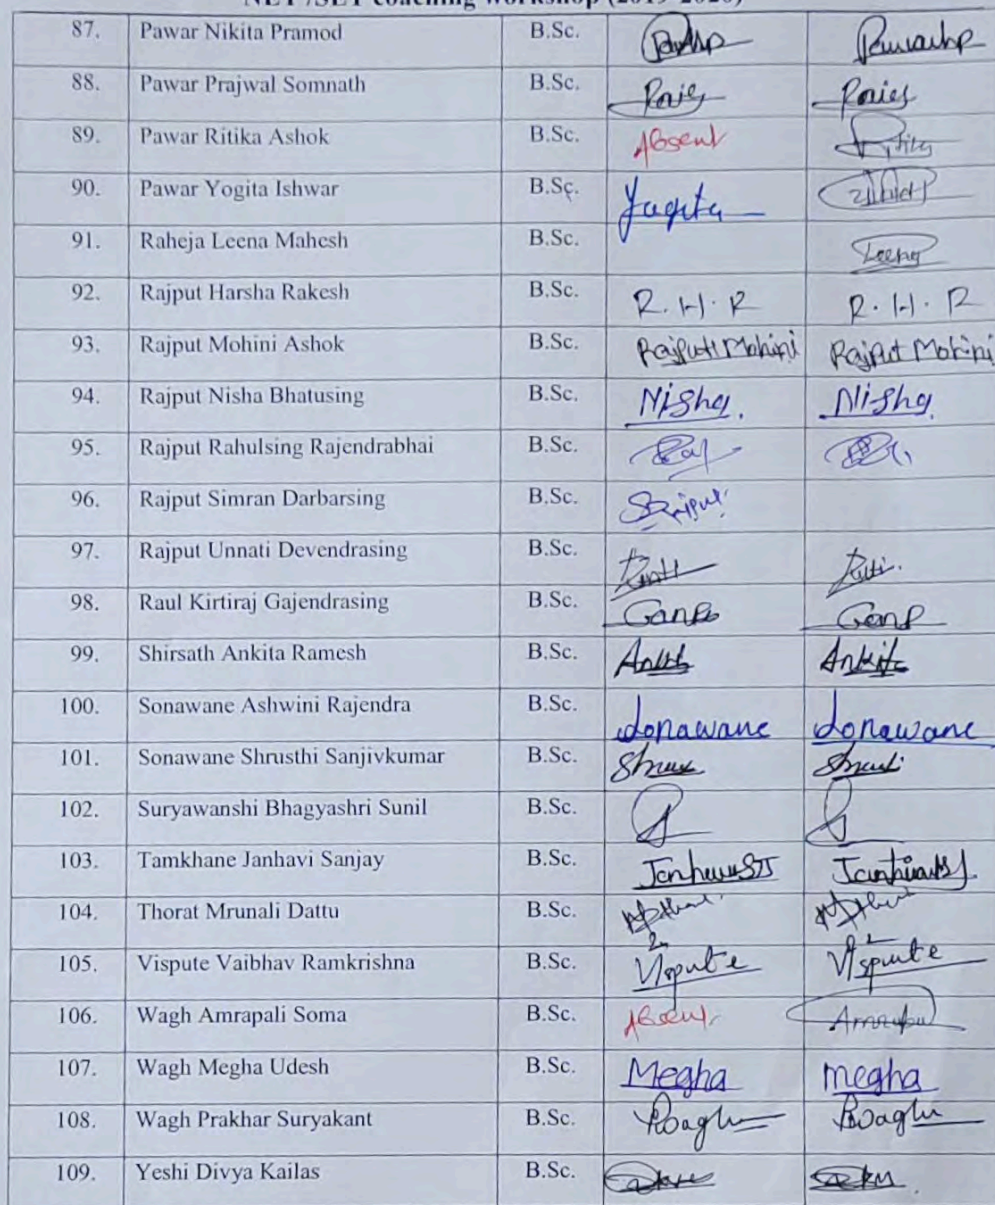 NET /SET coaching workshop (2019-2020)
87. Pawar Nikita Pramod B.Sc.
88. Pawar Prajwal Somnath B.Sc.
89. Pawar Ritika Ashok B.Sc. Absent
90. Pawar Yogita Ishwar B.Sc. Yogita
91. Raheja Leena Mahesh B.Sc. Leena
92. Rajput Harsha Rakesh B.Sc. R.H.R R.H.R
93. Rajput Mohini Ashok B.Sc. Rajput Mohini Rajput Mohini
94. Rajput Nisha Bhatusing B.Sc. Nisha. Nisha.
95. Rajput Rahulsing Rajendrabhai B.Sc.
96. Rajput Simran Darbarsing B.Sc. SRajput
97. Rajput Unnati Devendrasing B.Sc.
98. Raul Kirtiraj Gajendrasing B.Sc.
99. Shirsath Ankita Ramesh B.Sc. Ankita
100. Sonawane Ashwini Rajendra B.Sc. Sonawane Sonawane
101. Sonawane Shrusthi Sanjivkumar B.Sc.
102. Suryawanshi Bhagyashri Sunil B.Sc.
103. Tamkhane Janhavi Sanjay B.Sc.
104. Thorat Mrunali Dattu B.Sc.
105. Vispute Vaibhav Ramkrishna B.Sc. Vispute Vispute
106. Wagh Amrapali Soma B.Sc. Absent
107. Wagh Megha Udesh B.Sc. Megha megha
108. Wagh Prakhar Suryakant B.Sc. PWagh PWagh
109. Yeshi Divya Kailas B.Sc.